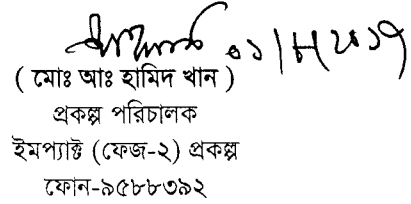 ০১/৮/২০১৭
( মোঃ আঃ হামিদ খান )
প্রকল্প পরিচালক
ইমপ্যাক্ট (ফেজ-২) প্রকল্প
ফোন-৯৫৮৮৩৯২